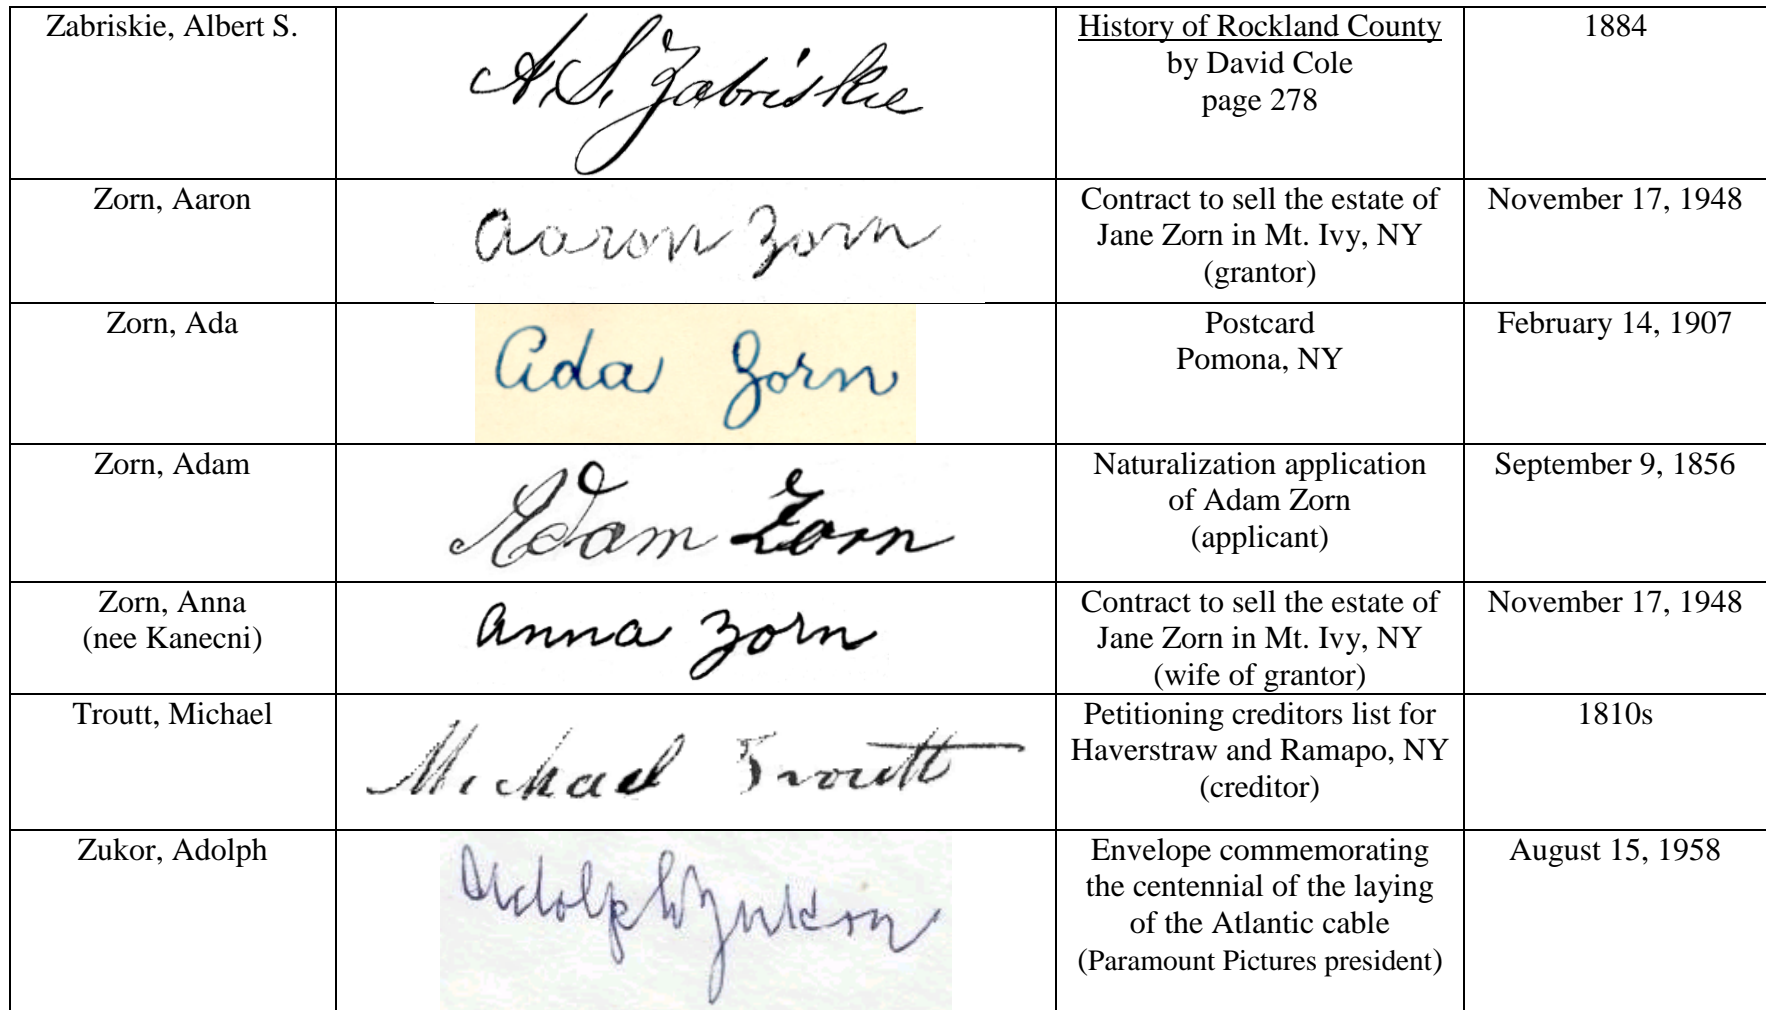 Zabriskie, Albert S.
A. S. Zabriskie
History of Rockland County
by David Cole
page 278
1884
Zorn, Aaron
Aaron Zorn
Contract to sell the estate of
Jane Zorn in Mt. Ivy, NY
(grantor)
November 17, 1948
Zorn, Ada
Ada Zorn
Postcard
Pomona, NY
February 14, 1907
Zorn, Adam
Adam Zorn
Naturalization application
of Adam Zorn
(applicant)
September 9, 1856
Zorn, Anna
(nee Kanecni)
Anna Zorn
Contract to sell the estate of
Jane Zorn in Mt. Ivy, NY
(wife of grantor)
November 17, 1948
Troutt, Michael
Michael Troutt
Petitioning creditors list for
Haverstraw and Ramapo, NY
(creditor)
1810s
Zukor, Adolph
Adolph Zukor
Envelope commemorating
the centennial of the laying
of the Atlantic cable
(Paramount Pictures president)
August 15, 1958